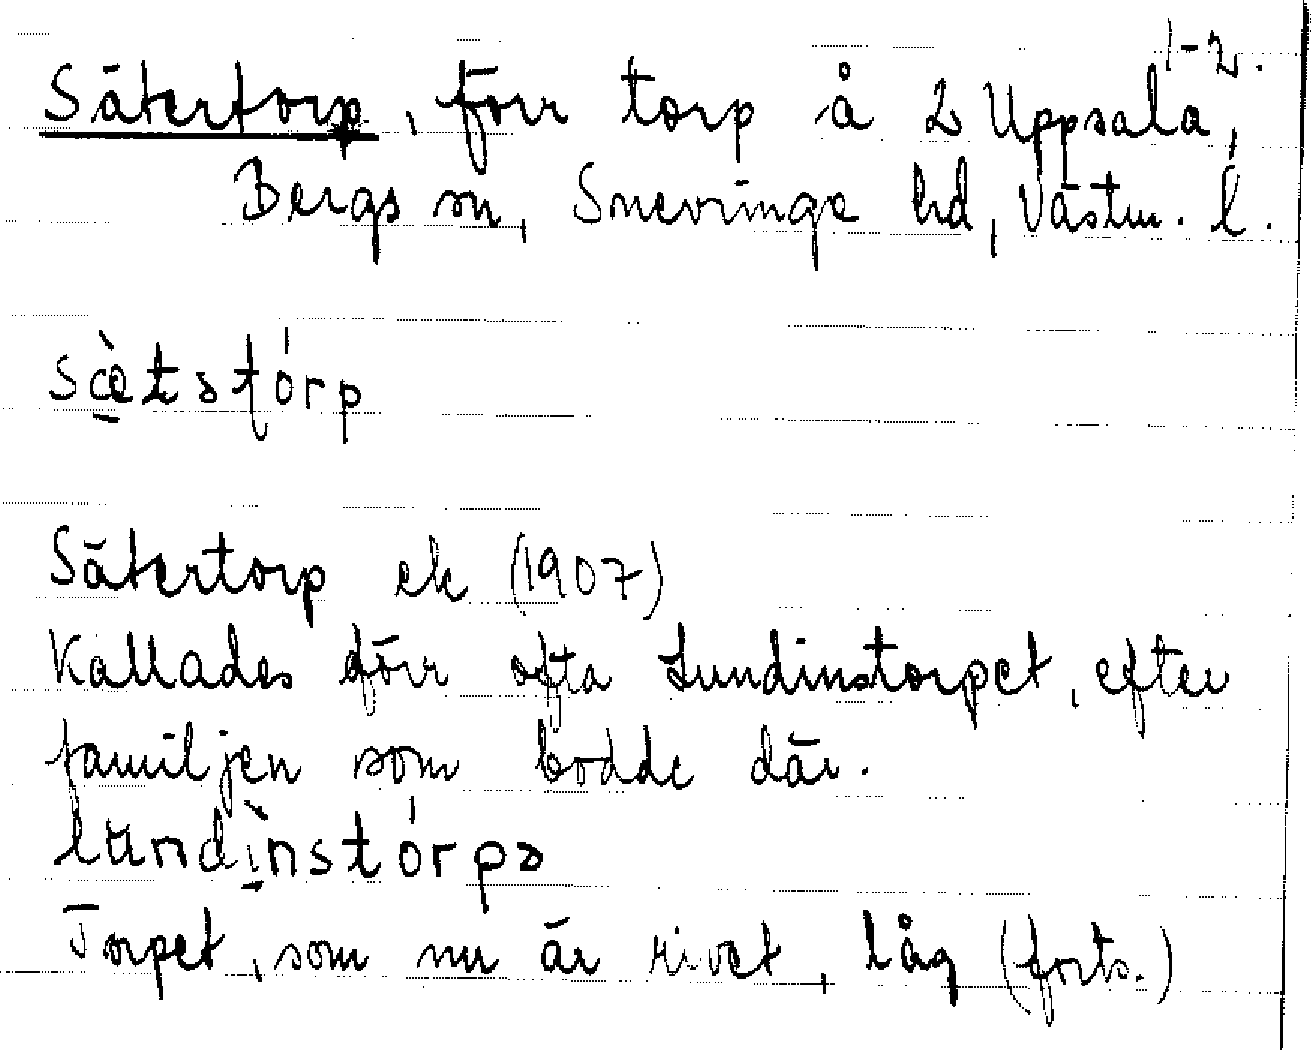 1-2.
Sätertorp, förr torp å 2 Uppsala,
Bergs sn, Snevringe hd, Västm. l.
sæ̀tstórp
Sätertorp ek (1907)
Kallades förr ofta Lundinstorpet, efter
familjen som bodde där.
lundìnstórpə
Torpet, som nu är rivet, låg (forts.)